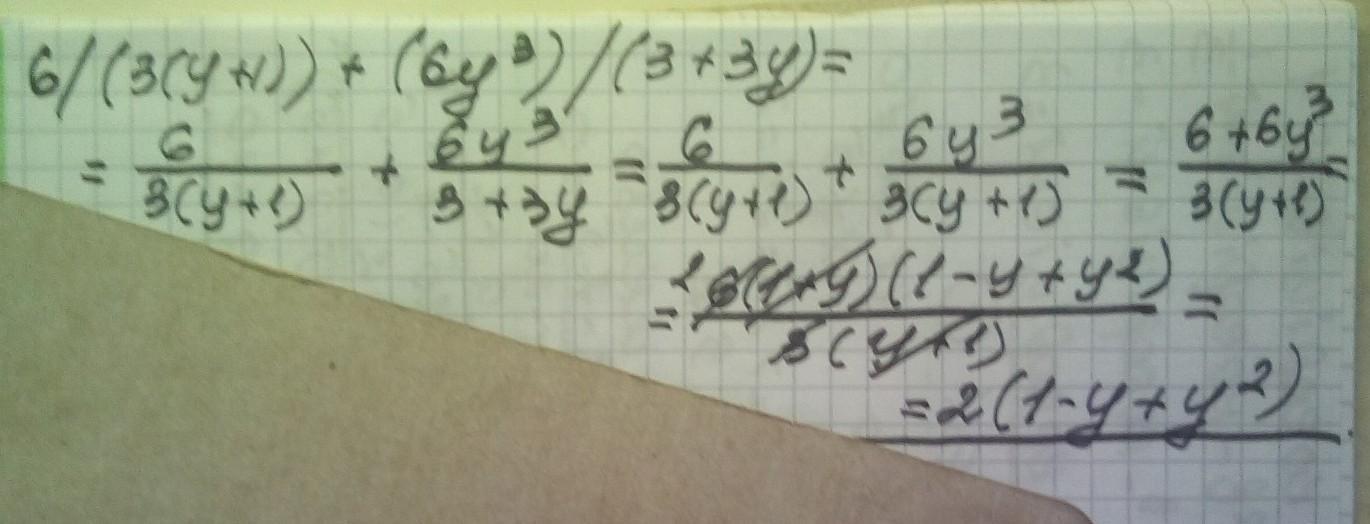 6/(3(y+1)) + (6y³)/(3+3y)=
= 6/(3(y+1)) + 6y³/(3+3y) = 6/(3(y+1)) + 6y³/(3(y+1)) = (6+6y³)/(3(y+1)) =
= 2 6(1+y)(1-y+y²)/(3(y+1)) =
= 2(1-y+y²)